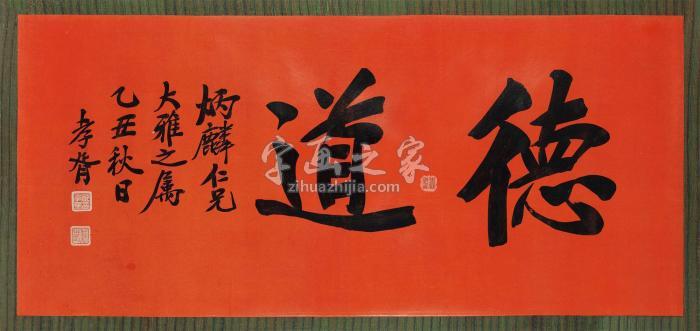 德
炳麟仁兄
大雅之属
乙丑秋日
孝胥
字画之家
zihuazhijia.com